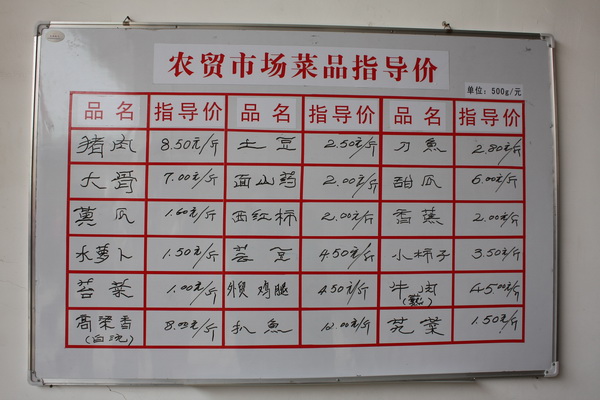 农贸市场菜品指导价
单位：500g/元
品名 指导价 品名 指导价 品名 指导价
猪肉 8.50元/斤 土豆 2.50元/斤 刀鱼 2.80元/斤
大骨 7.00元/斤 面山药 2.00元/斤 甜瓜 6.00元/斤
黄瓜 1.60元/斤 西红柿 2.00元/斤 香蕉 2.00元/斤
水萝卜 1.50元/斤 芸豆 4.50元/斤 小柿子 3.50元/斤
苔菜 1.00元/斤 外贸鸡腿 4.50元/斤 牛肉 45.00元/斤
(熟)
高荣香 8.00元/斤 扒鱼 12.00元/斤 芫荽 1.50元/斤